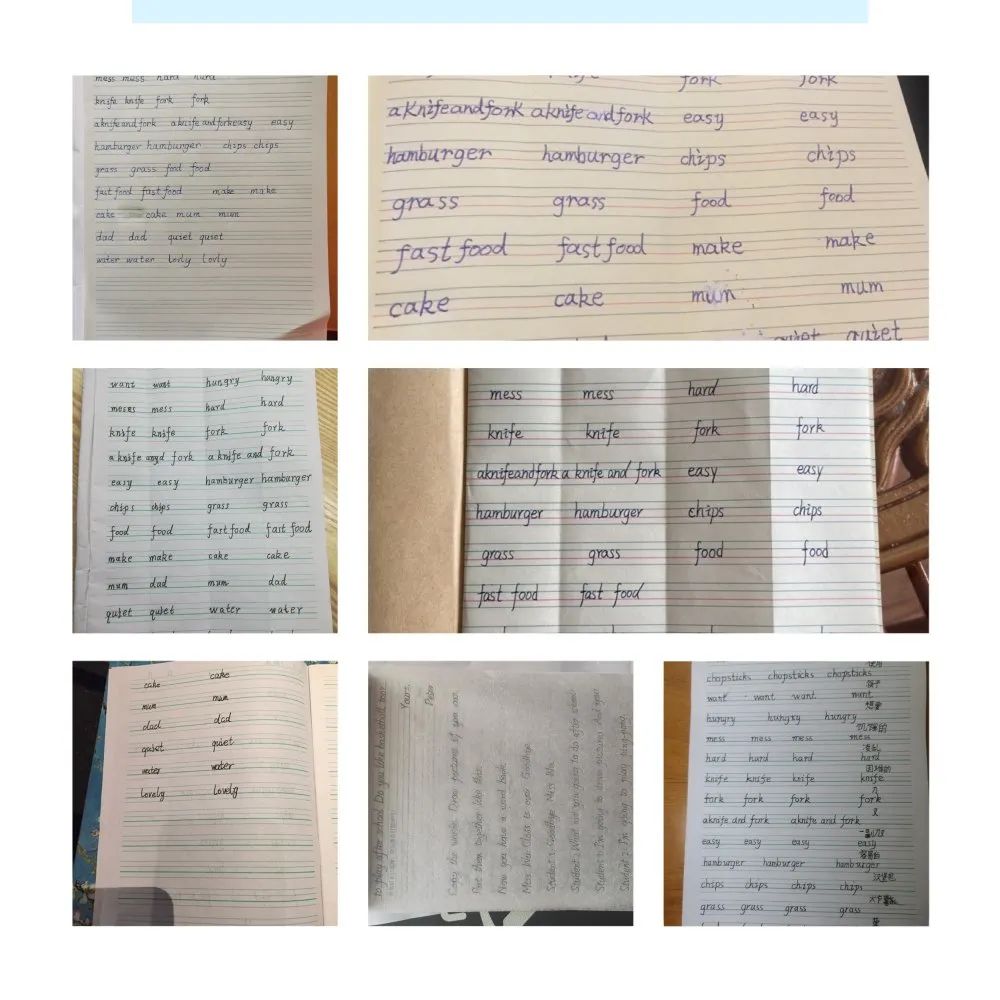 mess mess hard hard
knife knife fork fork
aknifeandfork aknife andforkeasy easy
hamburger hamburger chips chips
grass grass food food
fast food fast food make make
cake cake mum mum
dad dad quiet quiet
water water lovly lovly
fork fork
aknifeandfork aknifeandfork easy easy
hamburger hamburger chips chips
grass grass food food
fast food fast food make make
cake cake mum mum
quiet quiet
want want hungry hungry
mess mess hard hard
knife knife fork fork
a knife and fork a knife and fork
easy easy hamburger hamburger
chips chips grass grass
food food fast food fast food
make make cake cake
mum dad mum dad
quiet quiet water water
mess mess hard hard
knife knife fork fork
aknifeandfork a knife and fork easy easy
hamburger hamburger chips chips
grass grass food food
fast food fast food
cake cake
mum mum
dad dad
quiet quiet
water water
Lovely Lovely
to play after school. Do you like basketball, too?
Yours,
Peter
Copy the words. Draw pictures of you own.
Put them together like this.
Now you have a word book.
Miss Wu: Class is over. Goodbye.
Student: Goodbye, Miss Wu.
使用
chopsticks chopsticks chopsticks
筷子
want want want want
想要
hungry hungry hungry
饥饿的
mess mess mess mess
凌乱
hard hard hard hard
困难的
knife knife knife knife
刀
fork fork fork fork
叉
aknife and fork aknife and fork
easy easy easy easy
容易的
hamburger hamburger hamburger
汉堡包
chips chips chips chips
grass grass grass grass
草